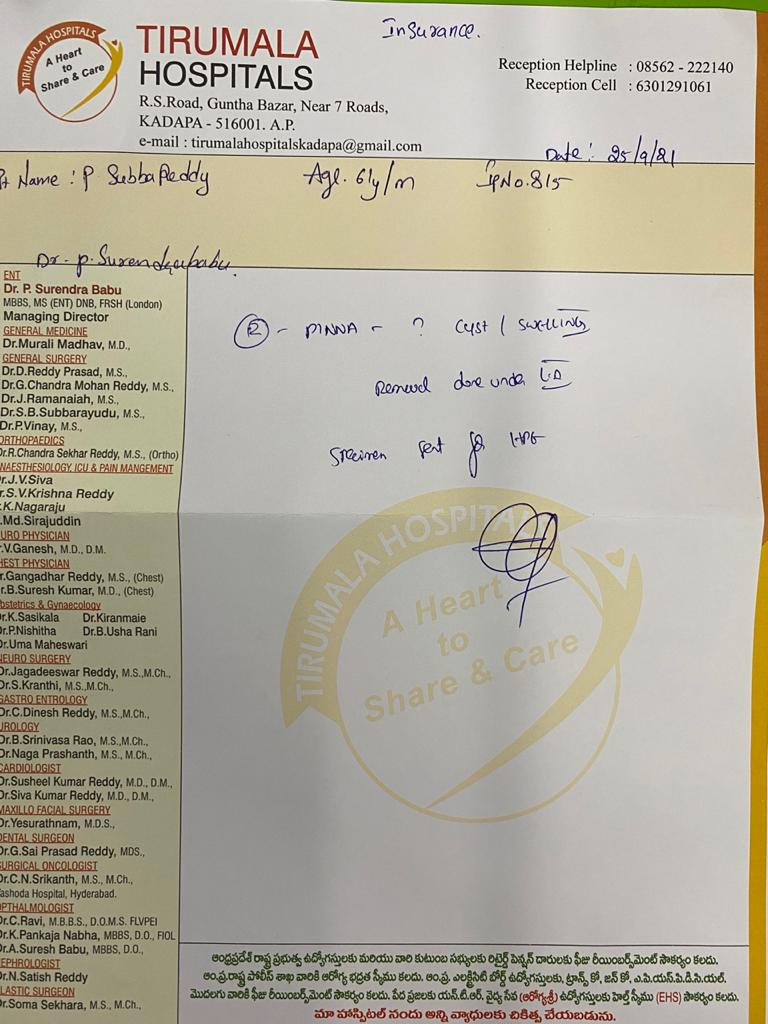 Insurance.
TIRUMALA HOSPITALS
A Heart
to
Share & Care
TIRUMALA
HOSPITALS
R.S.Road, Guntha Bazar, Near 7 Roads,
KADAPA - 516001. A.P.
e-mail : tirumalahospitalskadapa@gmail.com
Reception Helpline : 08562 - 222140
Reception Cell : 6301291061
Date: 25/9/21
Pt Name : P SubbaReddy Age. 61y/m IpNo.815
Dr. P. Surendrababu.
ENT
Dr. P. Surendra Babu
MBBS, MS (ENT) DNB, FRSH (London)
Managing Director
GENERAL MEDICINE
Dr.Murali Madhav, M.D.,
GENERAL SURGERY
Dr.D.Reddy Prasad, M.S.,
Dr.G.Chandra Mohan Reddy, M.S.,
Dr.J.Ramanaiah, M.S.,
Dr.S.B.Subbarayudu, M.S.,
Dr.P.Vinay, M.S.,
ORTHOPAEDICS
Dr.R.Chandra Sekhar Reddy, M.S., (Ortho)
NAESTHESIOLOGY, ICU & PAIN MANGEMENT
r.J.V.Siva
r.S.V.Krishna Reddy
.K.Nagaraju
.Md.Sirajuddin
URO PHYSICIAN
r.V.Ganesh, M.D., D.M.
HEST PHYSICIAN
r.Gangadhar Reddy, M.S., (Chest)
r.B.Suresh Kumar, M.D., (Chest)
bstetrics & Gynaecology
Dr.K.Sasikala Dr.Kiranmaie
Dr.P.Nishitha Dr.B.Usha Rani
Dr.Uma Maheswari
NEURO SURGERY
Dr.Jagadeeswar Reddy, M.S.,M.Ch.,
Dr.S.Kranthi, M.S.,M.Ch.,
GASTRO ENTROLOGY
Dr.C.Dinesh Reddy, M.S.,M.Ch.,
UROLOGY
Dr.B.Srinivasa Rao, M.S.,M.Ch.,
Dr.Naga Prashanth, M.S., M.Ch.,
CARDIOLOGIST
Dr.Susheel Kumar Reddy, M.D., D.M.,
Dr.Siva Kumar Reddy, M.D., D.M.,
MAXILLO FACIAL SURGERY
Dr.Yesurathnam, M.D.S.,
DENTAL SURGEON
Dr.G.Sai Prasad Reddy, MDS.,
SURGICAL ONCOLOGIST
Dr.C.N.Srikanth, M.S., M.Ch.,
ashoda Hospital, Hyderabad.
OPTHALMOLOGIST
Dr.C.Ravi, M.B.B.S., D.O.M.S. FLVPEI
Dr.K.Pankaja Nabha, MBBS, D.O., FIOL
Dr.A.Suresh Babu, MBBS, D.O.,
NEPHROLOGIST
Dr.N.Satish Reddy
PLASTIC SURGEON
Dr.Soma Sekhara, M.S., M.Ch.,
R - PINNA - ? cyst / SWELLING
Removal done under LA
Specimen sent for HPE
TIRUMALA HOSPITALS
A Heart
to
Share & Care
ఆంధ్రప్రదేశ్ రాష్ట్ర ప్రభుత్వ ఉద్యోగస్తులకు మరియు వారి కుటుంబ సభ్యులకు రిటైర్డ్ పెన్షన్ దారులకు ఫీజు రీయింబర్స్‌మెంట్ సౌకర్యం కలదు.
ఆం.ప్ర.రాష్ట్ర పోలీస్ శాఖ వారికి ఆరోగ్య భద్రత స్కీము కలదు. ఆం.ప్ర. ఎలక్ట్రిసిటి బోర్డ్ ఉద్యోగస్తులకు, ట్రాన్స్ కో, జన్ కో, ఎ.పి.యస్.పి.డి.సి.యల్.
మొదలగు వారికి ఫీజు రీయింబర్స్‌మెంట్ సౌకర్యం కలదు. పేద ప్రజలకు యన్.టి.ఆర్. వైద్య సేవ (ఆరోగ్యశ్రీ) ఉద్యోగస్తులకు హెల్త్ స్కీము (EHS) సౌకర్యం కలదు.
మా హాస్పిటల్ నందు అన్ని వ్యాధులకు చికిత్స చేయబడును.